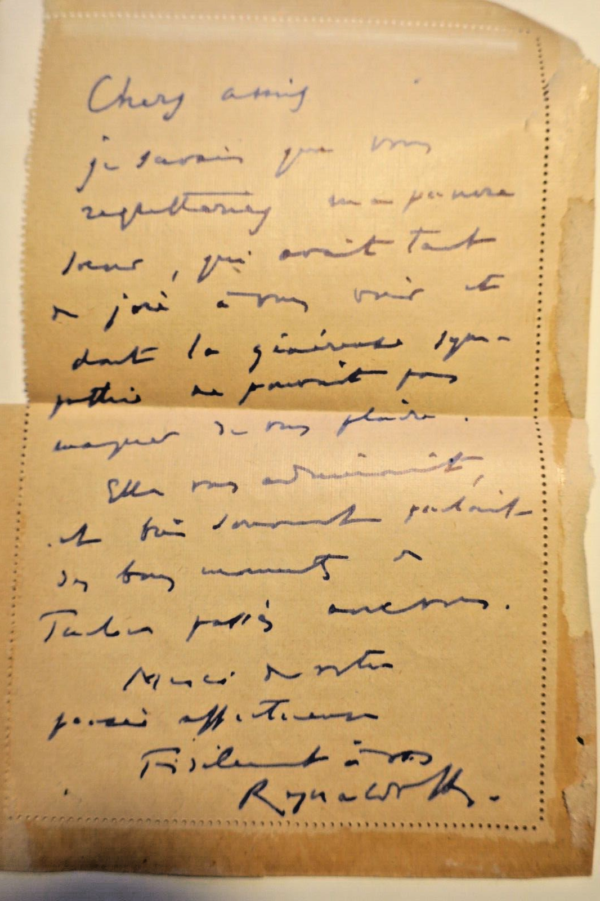 Chers amis
je savais que vous
regretteriez ma pauvre
sœur, qui avait tant
de joie à vous voir et
dont la généreuse sym-
pathie ne pouvait pas
manquer de vous plaire.
Elle vous admirait,
et bien souvent parlait
des bons moments à
Toulon passés avec vous.
Merci de votre
pensée affectueuse
Fidèlement à vous
Reynaldo Hahn.